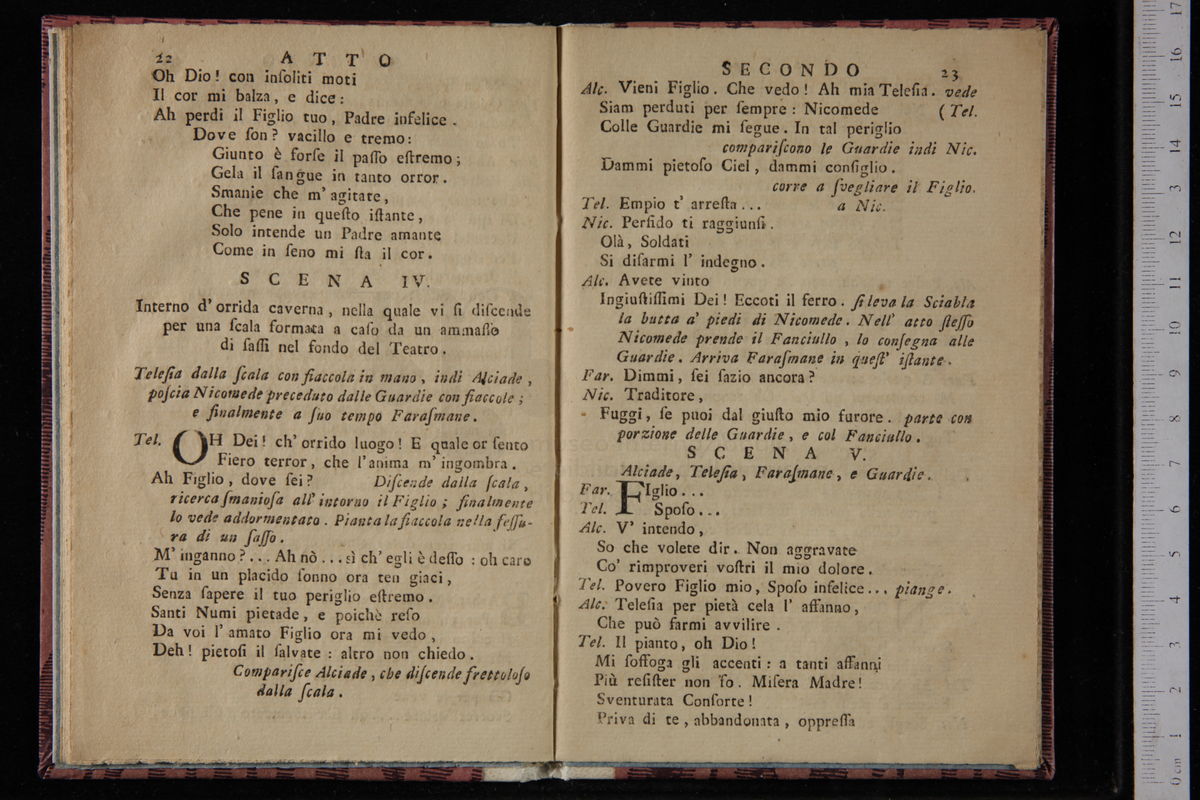 22 ATTO
Oh Dio! con inſoliti moti
Il cor mi balza, e dice:
Ah perdi il Figlio tuo, Padre infelice.
Dove ſon? vacillo e tremo:
Giunto è forſe il paſſo eſtremo;
Gela il ſangue in tanto orror.
Smanie che m' agitate,
Che pene in queſto iſtante,
Solo intende un Padre amante
Come in ſeno mi ſta il cor.
SCENA IV.
Interno d' orrida caverna, nella quale vi ſi diſcende
per una ſcala formata a caſo da un ammaſſo
di ſaſſi nel fondo del Teatro.
Teleſia dalla ſcala con fiaccola in mano, indi Alciade,
poſcia Nicomede preceduto dalle Guardie con fiaccole;
e finalmente a ſuo tempo Faraſmane.
Tel. OH Dei! ch' orrido luogo! E quale or ſento
Fiero terror, che l'anima m' ingombra.
Ah Figlio, dove ſei? Diſcende dalla ſcala,
ricerca ſmanioſa all' intorno il Figlio; finalmente
lo vede addormentato. Pianta la fiaccola nella feſſu-
ra di un ſaſſo.
M' inganno?... Ah nò... sì ch' egli è deſſo: oh caro
Tu in un placido ſonno ora ten giaci,
Senza ſapere il tuo periglio eſtremo.
Santi Numi pietade, e poichè reſo
Da voi l' amato Figlio ora mi vedo,
Deh! pietoſi il ſalvate: altro non chiedo.
Compariſce Alciade, che diſcende frettoloſo
dalla ſcala.
SECONDO 23
Alc. Vieni Figlio. Che vedo! Ah mia Teleſia. vede
Siam perduti per ſempre: Nicomede (Tel.
Colle Guardie mi ſegue. In tal periglio
compariſcono le Guardie indi Nic.
Dammi pietoſo Ciel, dammi conſiglio.
corre a ſvegliare il Figlio.
Tel. Empio t' arreſta... a Nic.
Nic. Perfido ti raggiunſi.
Olà, Soldati
Si diſarmi l' indegno.
Alc. Avete vinto
Ingiuſtiſſimi Dei! Eccoti il ferro. ſi leva la Sciabla
la butta a' piedi di Nicomede. Nell' atto ſteſſo
Nicomede prende il Fanciullo, lo conſegna alle
Guardie. Arriva Faraſmane in queſt' iſtante.
Far. Dimmi, ſei ſazio ancora?
Nic. Traditore,
Fuggi, ſe puoi dal giuſto mio furore. parte con
porzione delle Guardie, e col Fanciullo.
SCENA V.
Alciade, Teleſia, Faraſmane, e Guardie.
Far. FIglio...
Tel. Spoſo...
Alc. V' intendo,
So che volete dir. Non aggravate
Co' rimproveri voſtri il mio dolore.
Tel. Povero Figlio mio, Spoſo infelice... piange.
Alc. Teleſia per pietà cela l' affanno,
Che può farmi avvilire.
Tel. Il pianto, oh Dio!
Mi ſoffoga gli accenti: a tanti affanni
Più reſiſter non ſo. Miſera Madre!
Sventurata Conſorte!
Priva di te, abbandonata, oppreſſa
0 cm 1 2 3 4 5 6 7 8 9 10 11 12 3 14 15 16 17